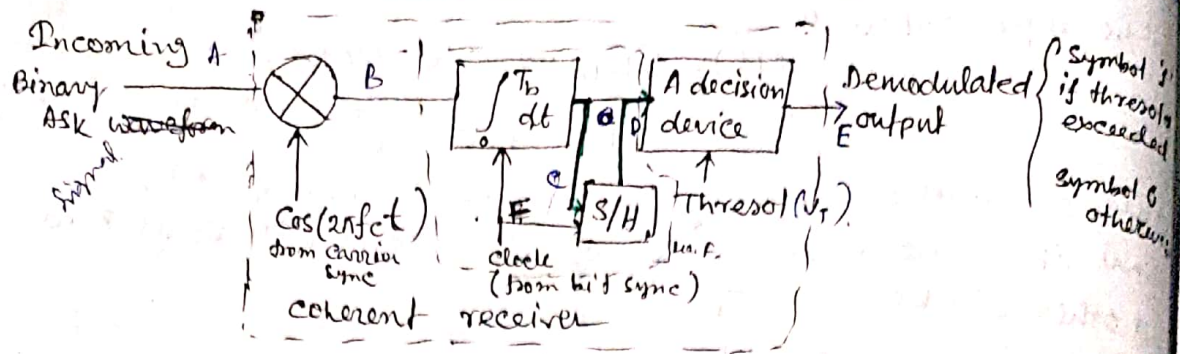 Incoming A
Binary
ASK waveform
Signal
B
∫ Tb dt
0
a
C
D
A decision
device
E
Demodulated
output
Symbol 1
if thresol
exceeded
Symbol 0
otherwi
Cos(2πfct)
from carrier
sync
E
S/H
Thresol (VT)
clock
(from bit sync)
coherent receiver